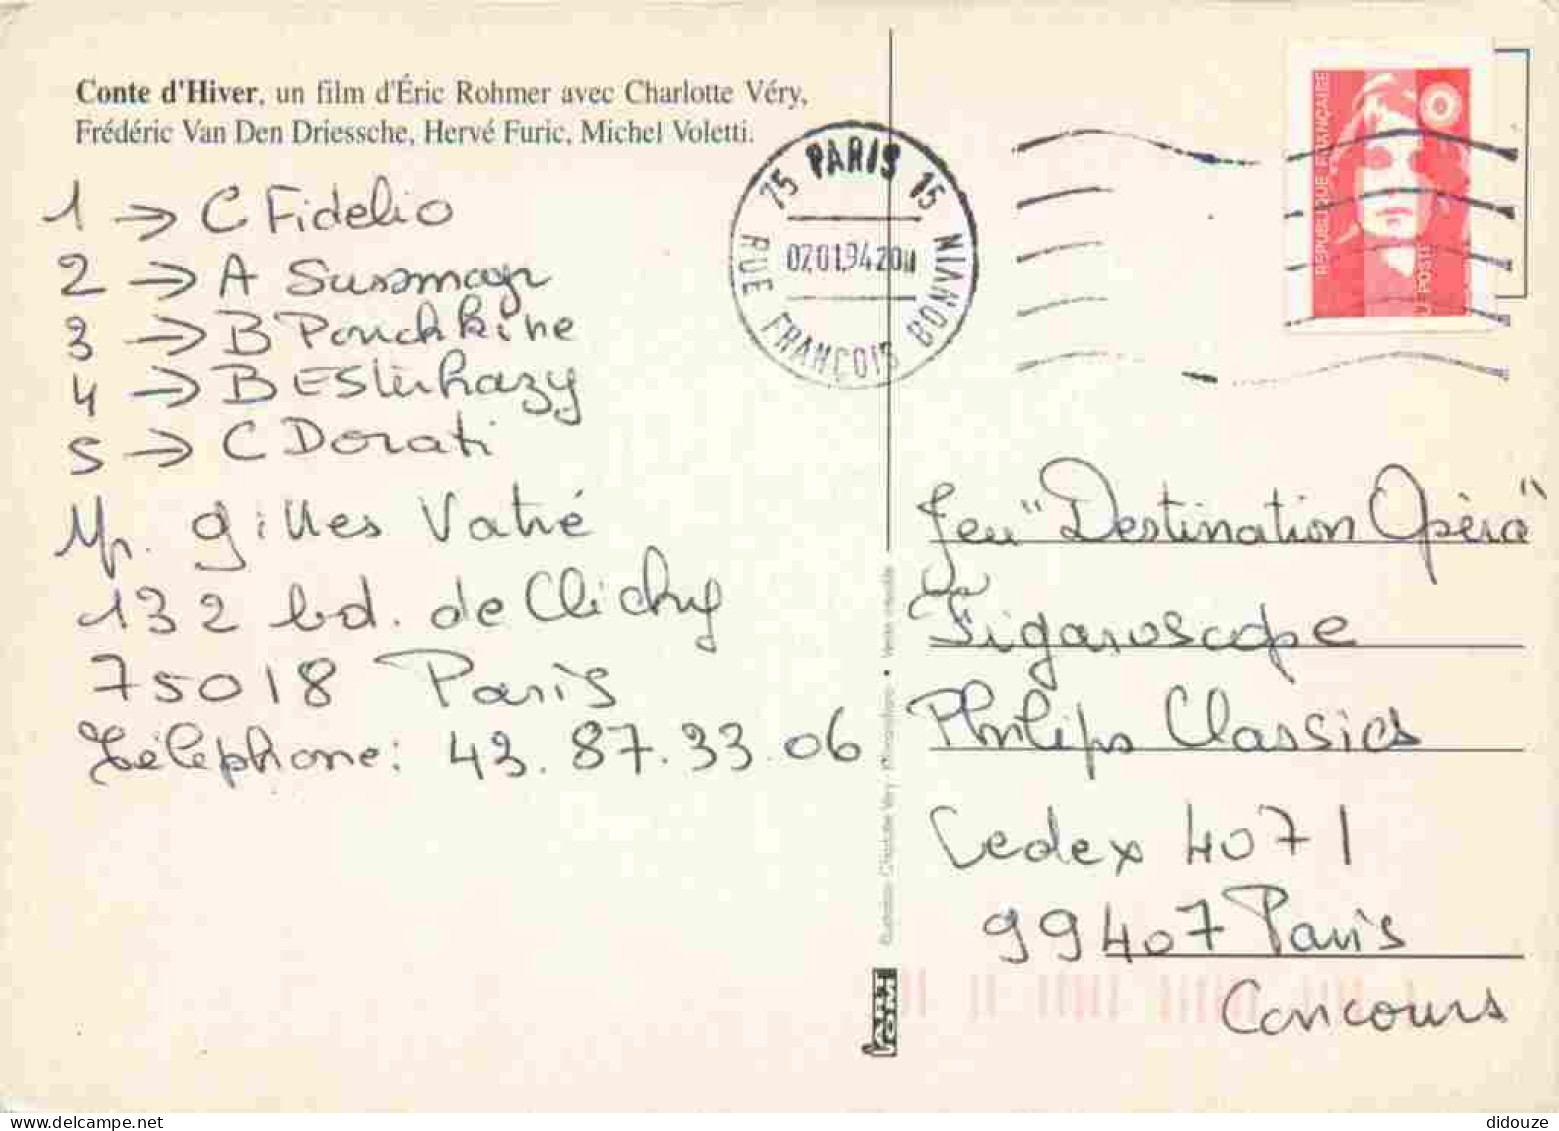 Conte d'Hiver, un film d'Éric Rohmer avec Charlotte Véry,
Frédéric Van Den Driessche, Hervé Furic, Michel Voletti.
1 → C Fidelio
2 → A Sussmayr
3 → B Pouchkine
4 → B Esterhazy
5 → C Dorati
Mr. Gilles Vatré
132 bd. de Clichy
75018 Paris
Téléphone: 43.87.33.06
75 PARIS 15
RUE FRANÇOIS BONVIN
02.01.94 20H
REPUBLIQUE FRANÇAISE
LA POSTE
Jeu "Destination Opéra"
Figaroscope
Philips Classics
Cedex 4071
99407 Paris
Concours
Illustration Charlotte Véry
didouze